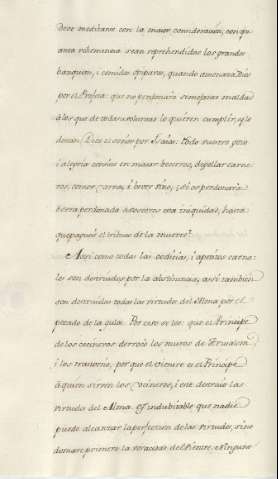 Deve meditarse con la mayor consideracion, con qu-
anta vehemencia sean reprehendidos los grandes
banquetes, i comidas opiparas, quando amenaza Dios
por el Profeta: que no perdonaria semejante maldad
à los que de todas volveras lo quieren cumplir, se
deman. Dice el Señor por Isaias: todo vuestro gozo
i alegria consiste en matar becerros, degollar carne-
ros, comer carne, i bever vino; i si os perdonaria
sera perdonada à vosotros esta iniquidad, hasta
que pagueis el tributo de la muerte?
Asi como todas las codicias, i apetitos carna-
les son destruidos por la abstinencia, assi tambien
son destruidas todas las virtudes del Alma por el
pecado de la gula. Por esto se lee: que el Principe
de los cocineros derrocò los muros de Jerusalem,
i los trastornò, por que el vientre es el Principe
à quien sirven los Cocineros, i este destruie las
virtudes del Alma. Es indubitable que nadie
puede alcanzar la perfeccion de las virtudes, sino
domare primero la voracidad del Vientre. Ninguno